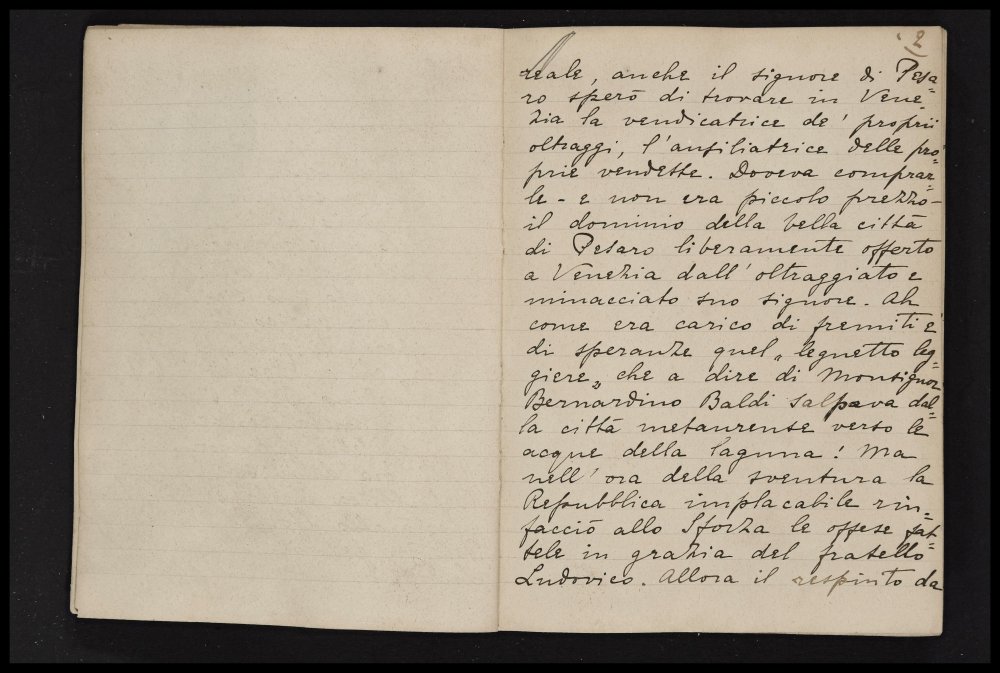 2
reale, anche il signore di Pesa=
ro sperò di trovare in Vene=
zia la vendicatrice de' proprii
oltraggi, l'ausiliatrice delle pro=
prie vendette. Doveva comprar=
le - e non era piccolo prezzo -
il dominio della bella città
di Pesaro liberamente offerto
a Venezia dall'oltraggiato e
minacciato suo signore. Ah
come era carico di fremiti e
di speranze quel „legnetto leg=
giere„ che a dire di Monsignor
Bernardino Baldi salpava dal=
la città metaurense verso le
acque della laguna! Ma
nell'ora della sventura la
Repubblica implacabile rin=
facciò allo Sforza le offese fat=
tele in grazia del fratello
Ludovico. Allora il respinto da